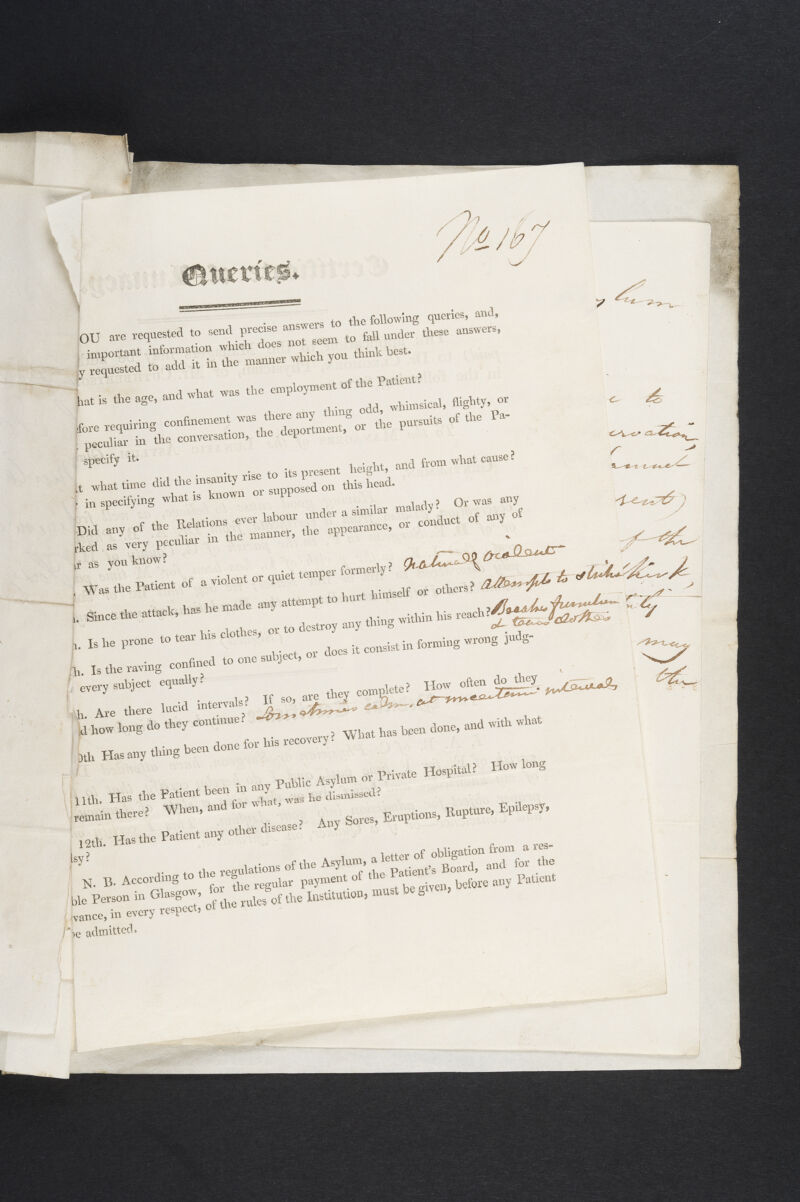 No 167
Queries.
OU are requested to send precise answers to the following queries, and,
important information which does not seem to fall under these answers,
y requested to add it in the manner which you think best.
hat is the age, and what was the employment of the Patient?
efore requiring confinement was there any thing odd, whimsical, flighty, or
peculiar in the conversation, the deportment, or the pursuits of the Pa-
specify it.
t what time did the insanity rise to its present height, and from what cause?
in specifying what is known or supposed on this head.
Did any of the Relations ever labour under a similar malady? Or was any
rked as very peculiar in the manner, the appearance, or conduct of any of
r as you know?
. Was the Patient of a violent or quiet temper formerly? Naturally violent
. Since the attack, has he made any attempt to hurt himself or others? Attempts to strike
. Is he prone to tear his clothes, or to destroy any thing within his reach? Breaks furniture
& tears clothes
h. Is the raving confined to one subject, or does it consist in forming wrong judg-
every subject equally?
h. Are there lucid intervals? If so, are they complete? How often do they
d how long do they continue? Sometimes calm, at uncertain intervals
0th Has any thing been done for his recovery? What has been done, and with what
11th. Has the Patient been in any Public Asylum or Private Hospital? How long
remain there? When, and for what, was he dismissed?
12th. Has the Patient any other disease? Any Sores, Eruptions, Rupture, Epilepsy,
lsy?
N. B. According to the regulations of the Asylum, a letter of obligation from a res-
ble Person in Glasgow, for the regular payment of the Patient's Board, and for the
vance, in every respect, of the rules of the Institution, must be given, before any Patient
be admitted.
ylum
to
ervation,
sent)
of the
ity
may
the